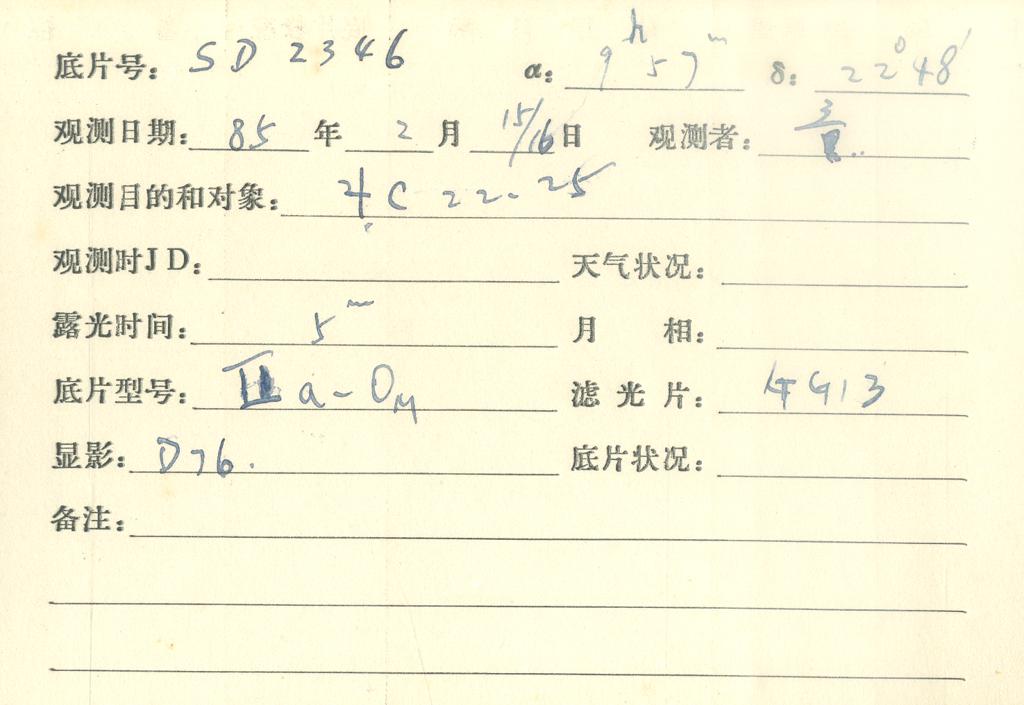 底片号: SD 2346 α: 9h 57m δ: 22°48′
观测日期: 85 年 2 月 15/16 日 观测者:
观测目的和对象: 4C 22-25
观测时JD: 天气状况:
露光时间: 5m 月 相:
底片型号: IIa-O 滤光片: GG13
显影: D76. 底片状况:
备注: